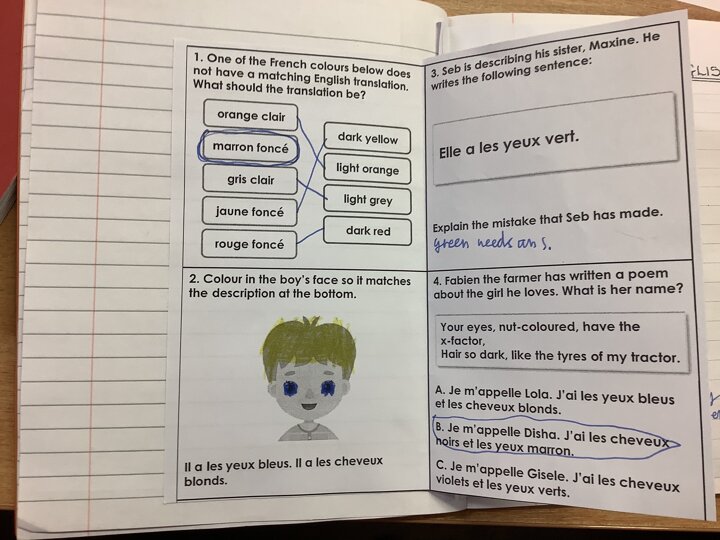 1. One of the French colours below does
not have a matching English translation.
What should the translation be?
orange clair
marron foncé
gris clair
jaune foncé
rouge foncé
dark yellow
light orange
light grey
dark red
2. Colour in the boy's face so it matches
the description at the bottom.
Il a les yeux bleus. Il a les cheveux
blonds.
3. Seb is describing his sister, Maxine. He
writes the following sentence:
Elle a les yeux vert.
Explain the mistake that Seb has made.
green needs an s.
4. Fabien the farmer has written a poem
about the girl he loves. What is her name?
Your eyes, nut-coloured, have the
x-factor,
Hair so dark, like the tyres of my tractor.
A. Je m'appelle Lola. J'ai les yeux bleus
et les cheveux blonds.
B. Je m'appelle Disha. J'ai les cheveux
noirs et les yeux marron.
C. Je m'appelle Gisele. J'ai les cheveux
violets et les yeux verts.